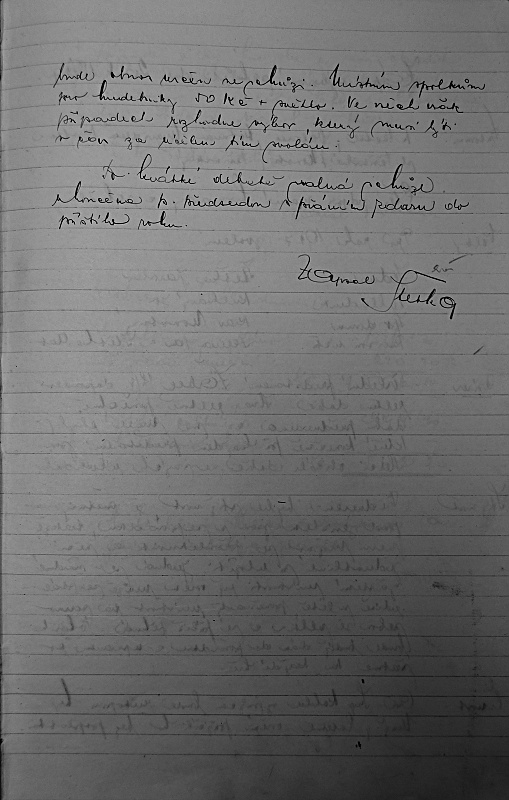 bude obnos určen na schůzi. Místním spolkům
pro hudebníky 50 Kč + světlo. Ve všech
případech rozhodne výbor, který musí býti
v čas za účelem tím svolán.
Po krátké debatě valná schůze
skončena p. předsedou s přáním zdaru do
příštího roku.
Zapsal